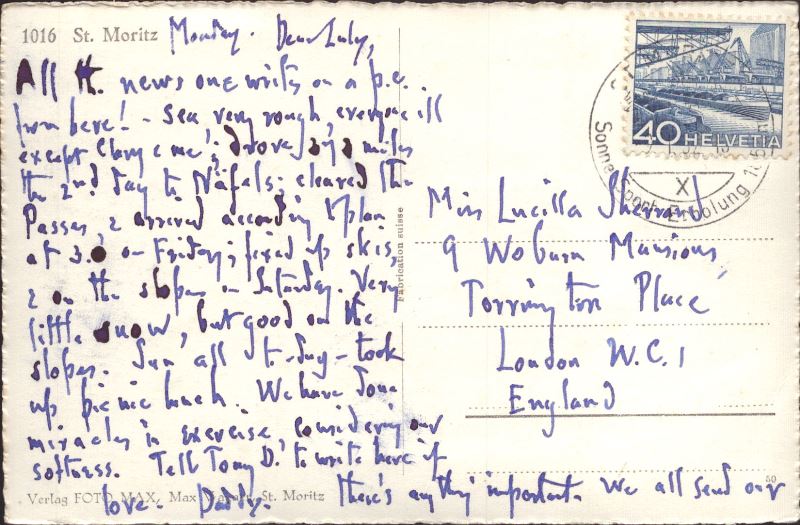 1016 St. Moritz
Monday. Dear Luly,
All the news one writes on a p.c.
from here! - Sea very rough, everyone ill
except Clary & me; drove miles
the 2nd day to Näfels; cleared the
Passes, & arrived according t' plan
at 3.0 on Friday; fixed up skis,
& on the slopes on Saturday. Very
little snow, but good on the
slopes. Sun all to-day - took
up picnic lunch. We have done
miracles in exercise, considering our
softness. Tell Tony D. to write here if
there's anything important. We all send our
love. Daddy.
Verlag FOTO MAX, Max St. Moritz
50
Fabrication suisse
40 HELVETIA
Sonne Sport Erholung
X
Miss Lucilla Sherrard
9 Woburn Mansions
Torrington Place
London W.C.1
England